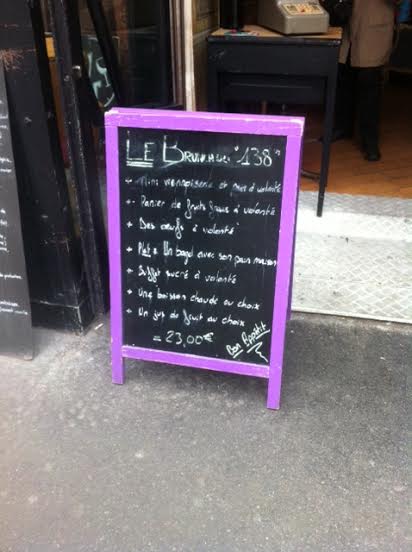 LE BRUNCH du "138"
+ Mini viennoiserie et pain à volonté
+ Panier de fruits frais à volonté
+ Des œufs à volonté
+ Plat: Un bagel avec son pain maison
+ Buffet sucré à volonté
+ Une boisson chaude au choix
+ Un jus de fruit au choix
= 23,00€
Bon Appétit